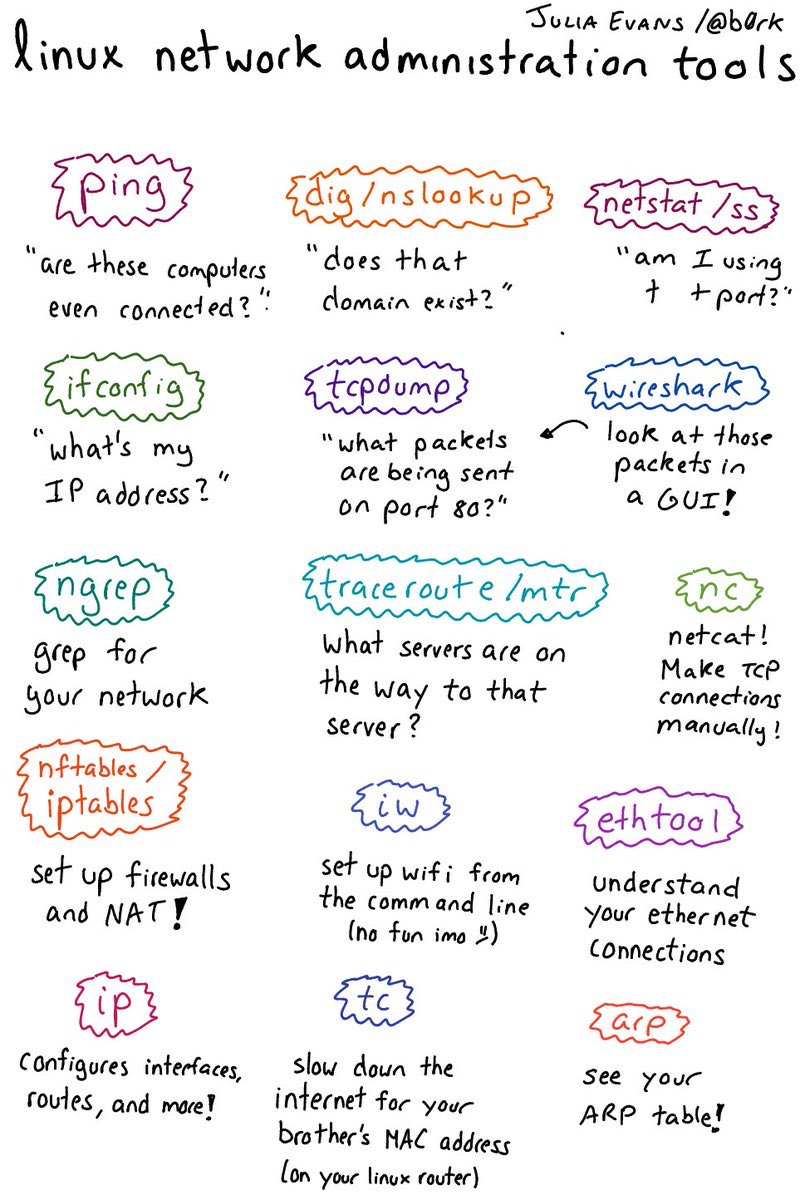 JULIA EVANS /@b0rk
linux network administration tools
ping
"are these computers
even connected?"
dig/nslookup
"does that
domain exist?"
netstat/ss
"am I using
t t port?"
ifconfig
"what's my
IP address?"
tcpdump
"what packets
are being sent
on port 80?"
wireshark
look at those
packets in
a GUI!
ngrep
grep for
your network
traceroute/mtr
What servers are on
the way to that
server?
nc
netcat!
Make TCP
connections
manually!
nftables/
iptables
set up firewalls
and NAT!
iw
set up wifi from
the command line
(no fun imo :))
ethtool
understand
your ethernet
connections
ip
configures interfaces,
routes, and more!
tc
slow down the
internet for your
brother's MAC address
(on your linux router)
arp
see your
ARP table!